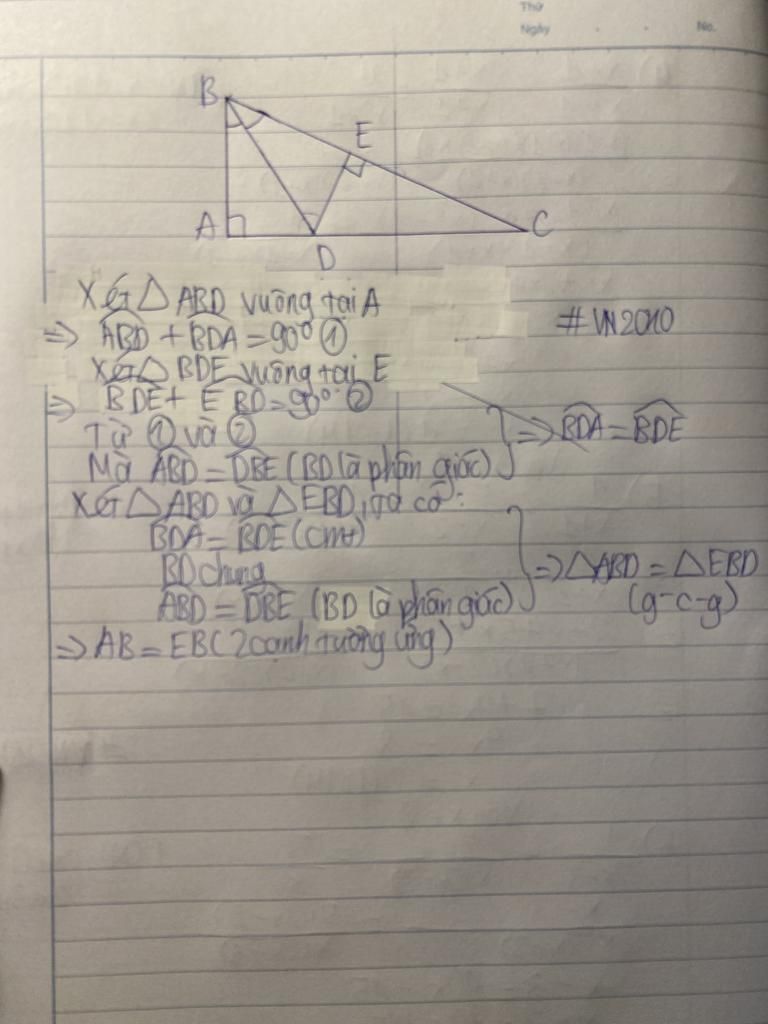 Thứ
Ngày
No.
B
E
A
D
C
Xét △ABD vuông tại A
⇒ ABD + BDA = 90° ①
#VN2010
Xét △ BDE vuông tại E
⇒ BDE + EBD = 90° ②
Từ ① và ②
Mà ABD = DBE (BD là phân giác)
⇒ BDA = BDE
Xét △ABD và △EBD, ta có:
BDA = BDE (cmt)
BD chung
ABD = DBE (BD là phân giác)
⇒ △ABD = △EBD
(g-c-g)
⇒ AB = EB (2 cạnh tương ứng)